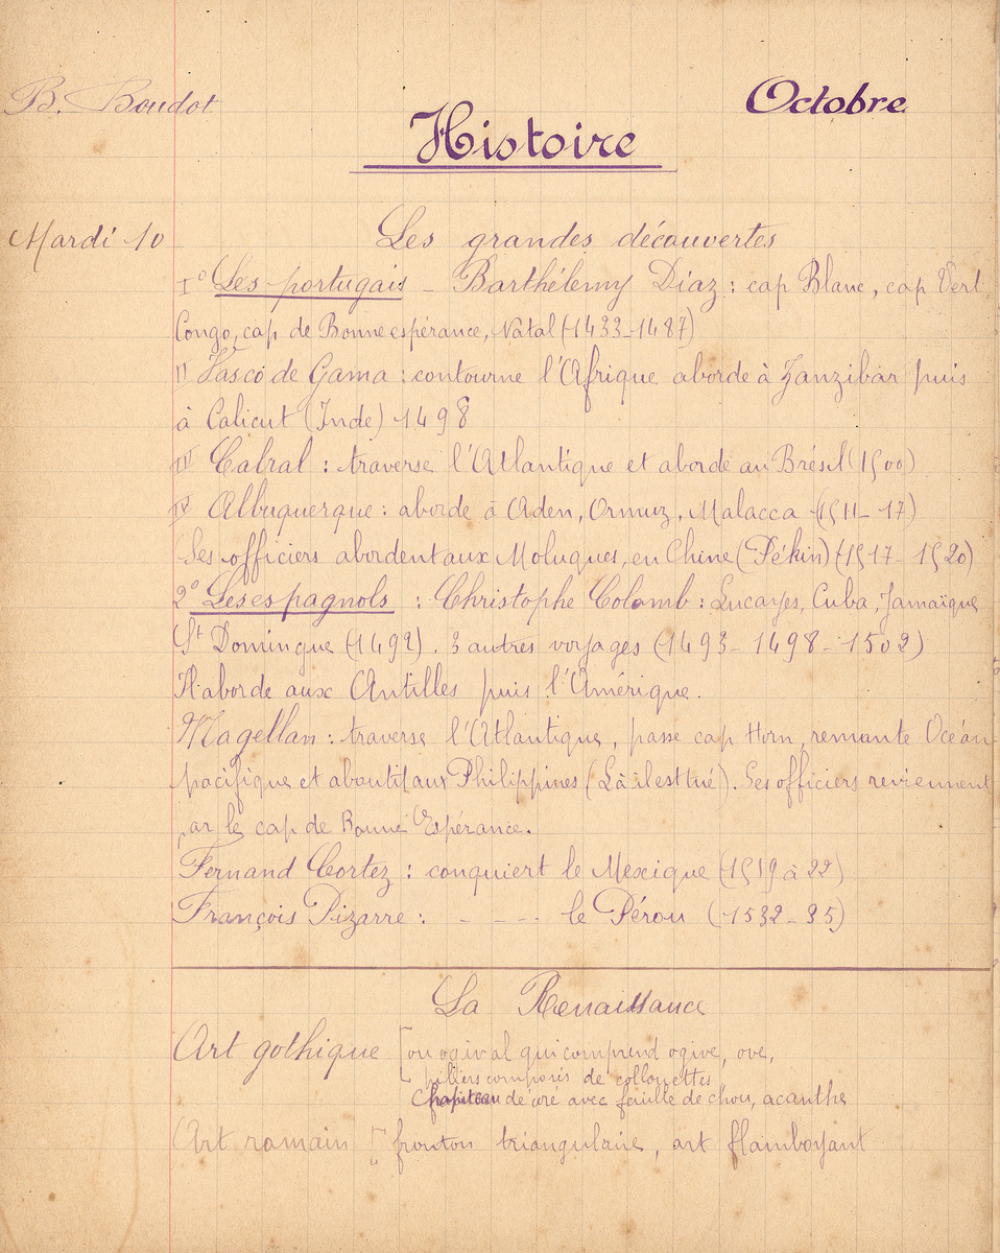 B. Boudot
Octobre
Histoire
Mardi 10
Les grandes découvertes
I° Les portugais - Barthélemy Diaz : cap Blanc, cap Vert
Congo, cap de Bonne espérance, Natal (1433-1487)
II Vasco de Gama : contourne l'Afrique aborde à Zanzibar puis
à Calicut (Inde) 1498
III Cabral : traverse l'Atlantique et aborde au Brésil (1500)
IV Albuquerque : aborde à Aden, Ormuz, Malacca (1511-17)
Ses officiers abordent aux Moluques, en Chine (Pékin) (1517-1520)
2° Les espagnols : Christophe Colomb : Lucayes, Cuba, Jamaïque
St Domingue (1492). 3 autres voyages (1493-1498-1502)
Il aborde aux Antilles puis l'Amérique.
Magellan : traverse l'Atlantique, passe cap Horn, remonte Océan
pacifique et aboutit aux Philippines (Là il est tué). Ses officiers reviennent
par le cap de Bonne Espérance.
Fernand Cortez : conquiert le Mexique (1519 à 22)
François Pizarre : - - - - le Pérou (1532-35)
La Renaissance
Art gothique [ou ogival qui comprend ogive, ove,
piliers composés de collonettes
Chapiteau décoré avec feuille de chou, acanthe
Art romain [fronton triangulaire, art flamboyant